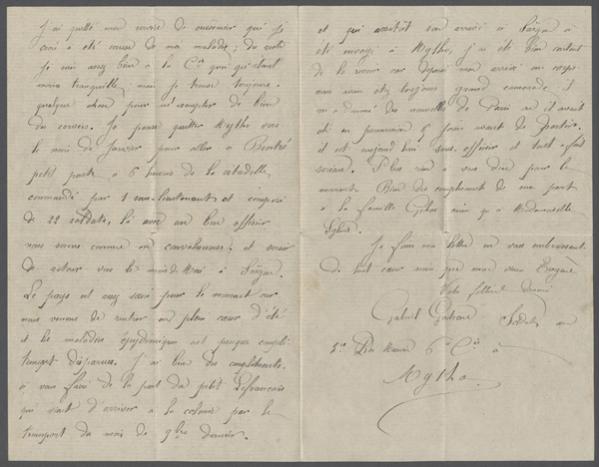 J'ai quitté mon service de cuisinier qui je
crois a été cause de ma maladie; du reste
je suis assez bien à la Cie quoi qu'étant
moins tranquille, mais je trouve toujours
quelque chose pour m'exempter de bien
du service. Je pense quitter Mytho vers
le mois de Janvier pour aller à Bentré
petit poste à 6 heures de la citadelle
commandé par 1 sous-lieutenant et composé
de 22 soldats, là avec un bon officier
nous serons comme en convalescence; et serai
de retour vers le mois de Mai à Saïgon.
Le pays est assez sain pour le moment car
nous venons de rentrer en plein cœur d'été
et les maladies épidémiques ont presque complè-
tement disparues. J'ai bien des compliments
à vous faire de la part du petit Lefrançois
qui vient d'arriver à la colonie par le
transport du mois de 9bre dernier.
et qui aussitôt son arrivée à Saïgon a
été envoyé à Mytho, j'ai été bien content
de le revoir car depuis mon arrivée au corps
nous avons été toujours grand camarade, il
m'a donné des nouvelles de Paris où il avait
été en permission 8 jours avant de partir.
il est aujourd'hui sous-officier et tout-à-fait
sérieux. Plus rien à vous dire pour le
moment. Bien des compliments de ma part
à la famille ainsi qu'à Mademoiselle
Je finis ma lettre en vous embrassant
de tout cœur ainsi que mon vieux Eugène
Votre fils tout dévoué
Gabriel Soldat au
5e Rég Marine 6e Cie à
Mytho.